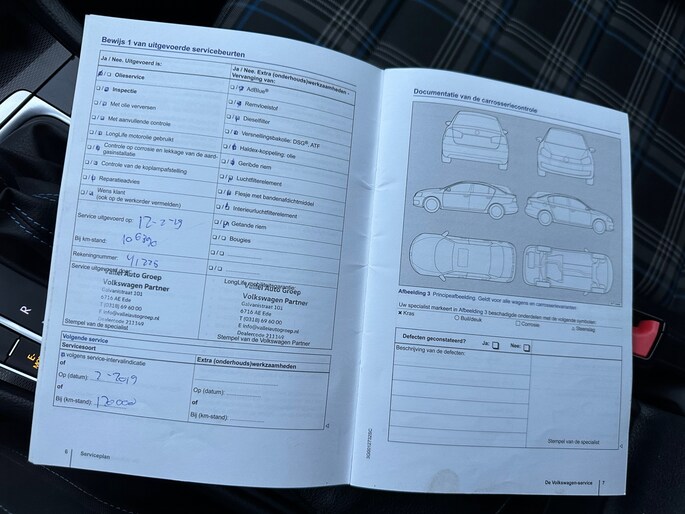 Bewijs 1 van uitgevoerde servicebeurten
Ja / Nee. Uitgevoerd is:
Olieservice
Inspectie
Met olie verversen
Met aanvullende controle
LongLife motorolie gebruikt
Controle op corrosie en lekkage van de aard-
gasinstallatie
Controle van de koplampafstelling
Reparatieadvies
Wens klant
(ook op de werkorder vermelden)
Service uitgevoerd op:
Bij km-stand:
Rekeningnummer: 41225
Service uitgevoerd door:
Vallei Auto Groep
Volkswagen Partner
Galvanistraat 101
6716 AE Ede
T (0318) 69 60 00
E info@valleiautogroep.nl
Dealercode 211149
Stempel van de specialist
Ja / Nee. Extra (onderhouds)werkzaamheden -
Vervanging van:
AdBlue®
Remvloeistof
Dieselfilter
Versnellingsbakolie: DSG®, ATF
Haldex-koppeling: olie
Geribde riem
Luchtfilterelement
Flesje met bandenafdichtmiddel
Interieurluchtfilterelement
Getande riem
Bougies
LongLife mobiliteitsgarantie:
Vallei Auto Groep
Volkswagen Partner
Galvanistraat 101
6716 AE Ede
T (0318) 69 60 00
E info@valleiautogroep.nl
Dealercode 211149
Stempel van de Volkswagen Partner
Volgende service
Servicesoort
Volgens service-intervalindicatie
of
Op (datum): 2-2019
of
Bij (km-stand): 120000
Extra (onderhouds)werkzaamheden
Op (datum):
of
Bij (km-stand):
6
Serviceplan
Documentatie van de carrosseriecontrole
Afbeelding 3 Principeafbeelding. Geldt voor alle wagens en carrosserievarianten.
Uw specialist markeert in Afbeelding 3 beschadigde onderdelen met de volgende symbolen:
× Kras
□ Buil/deuk
○ Corrosie
△ Steenslag
Defecten geconstateerd?
Ja:
Nee:
Beschrijving van de defecten:
Stempel van de specialist
De Volkswagen-service
7